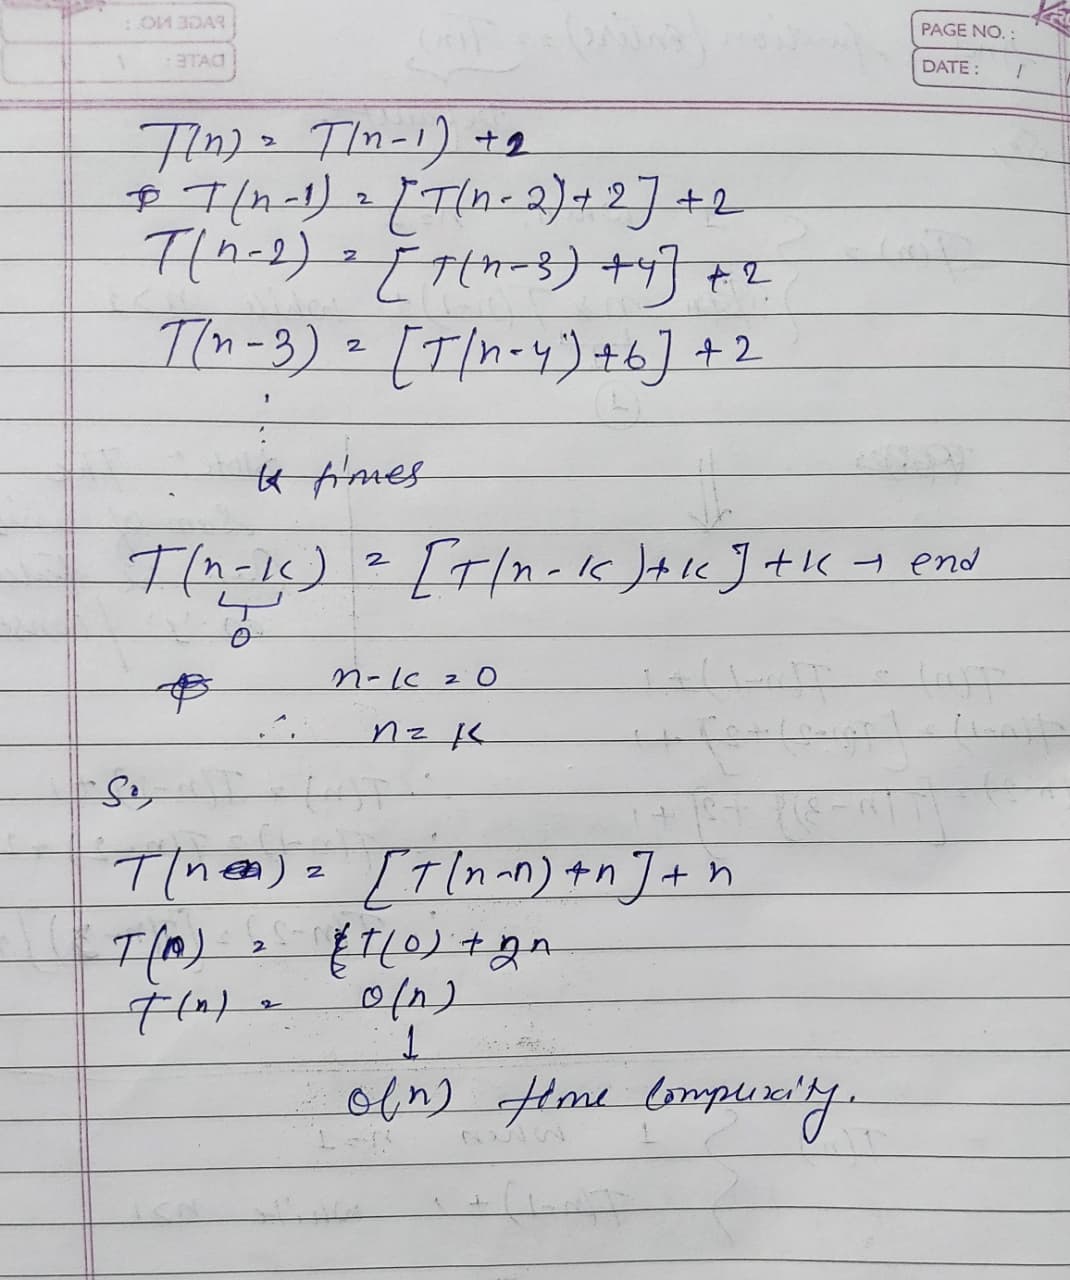 PAGE NO. :
DATE : /
T(n) = T(n-1) +2
T(n-1) = [T(n-2)+2] +2
T(n-2) = [T(n-3) +4] +2
T(n-3) = [T(n-4)+6] +2
k times
T(n-k) = [T(n-k)+k] +k → end
0
n-k = 0
∴ n = k
So,
T(n) = [T(n-n) +n] + n
T(n) = T(0) + 2n
T(n) = O(n)
↓
O(n) time complexity.